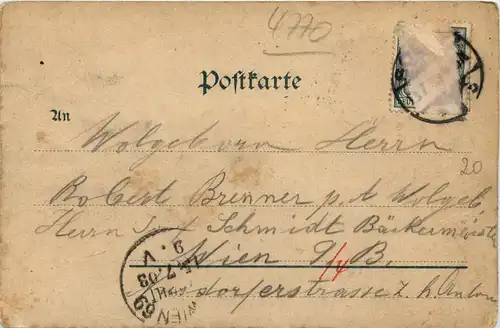 4770
Postkarte
An
Wolgeborn Herrn
20
Robert Brenner p. A. Wolgeb.
Herrn J. Schmidt Bäckermeister
Wien 9/4 B.
dorferstrasse z. h. Anton
WIEN
69
14.7.03
9. V